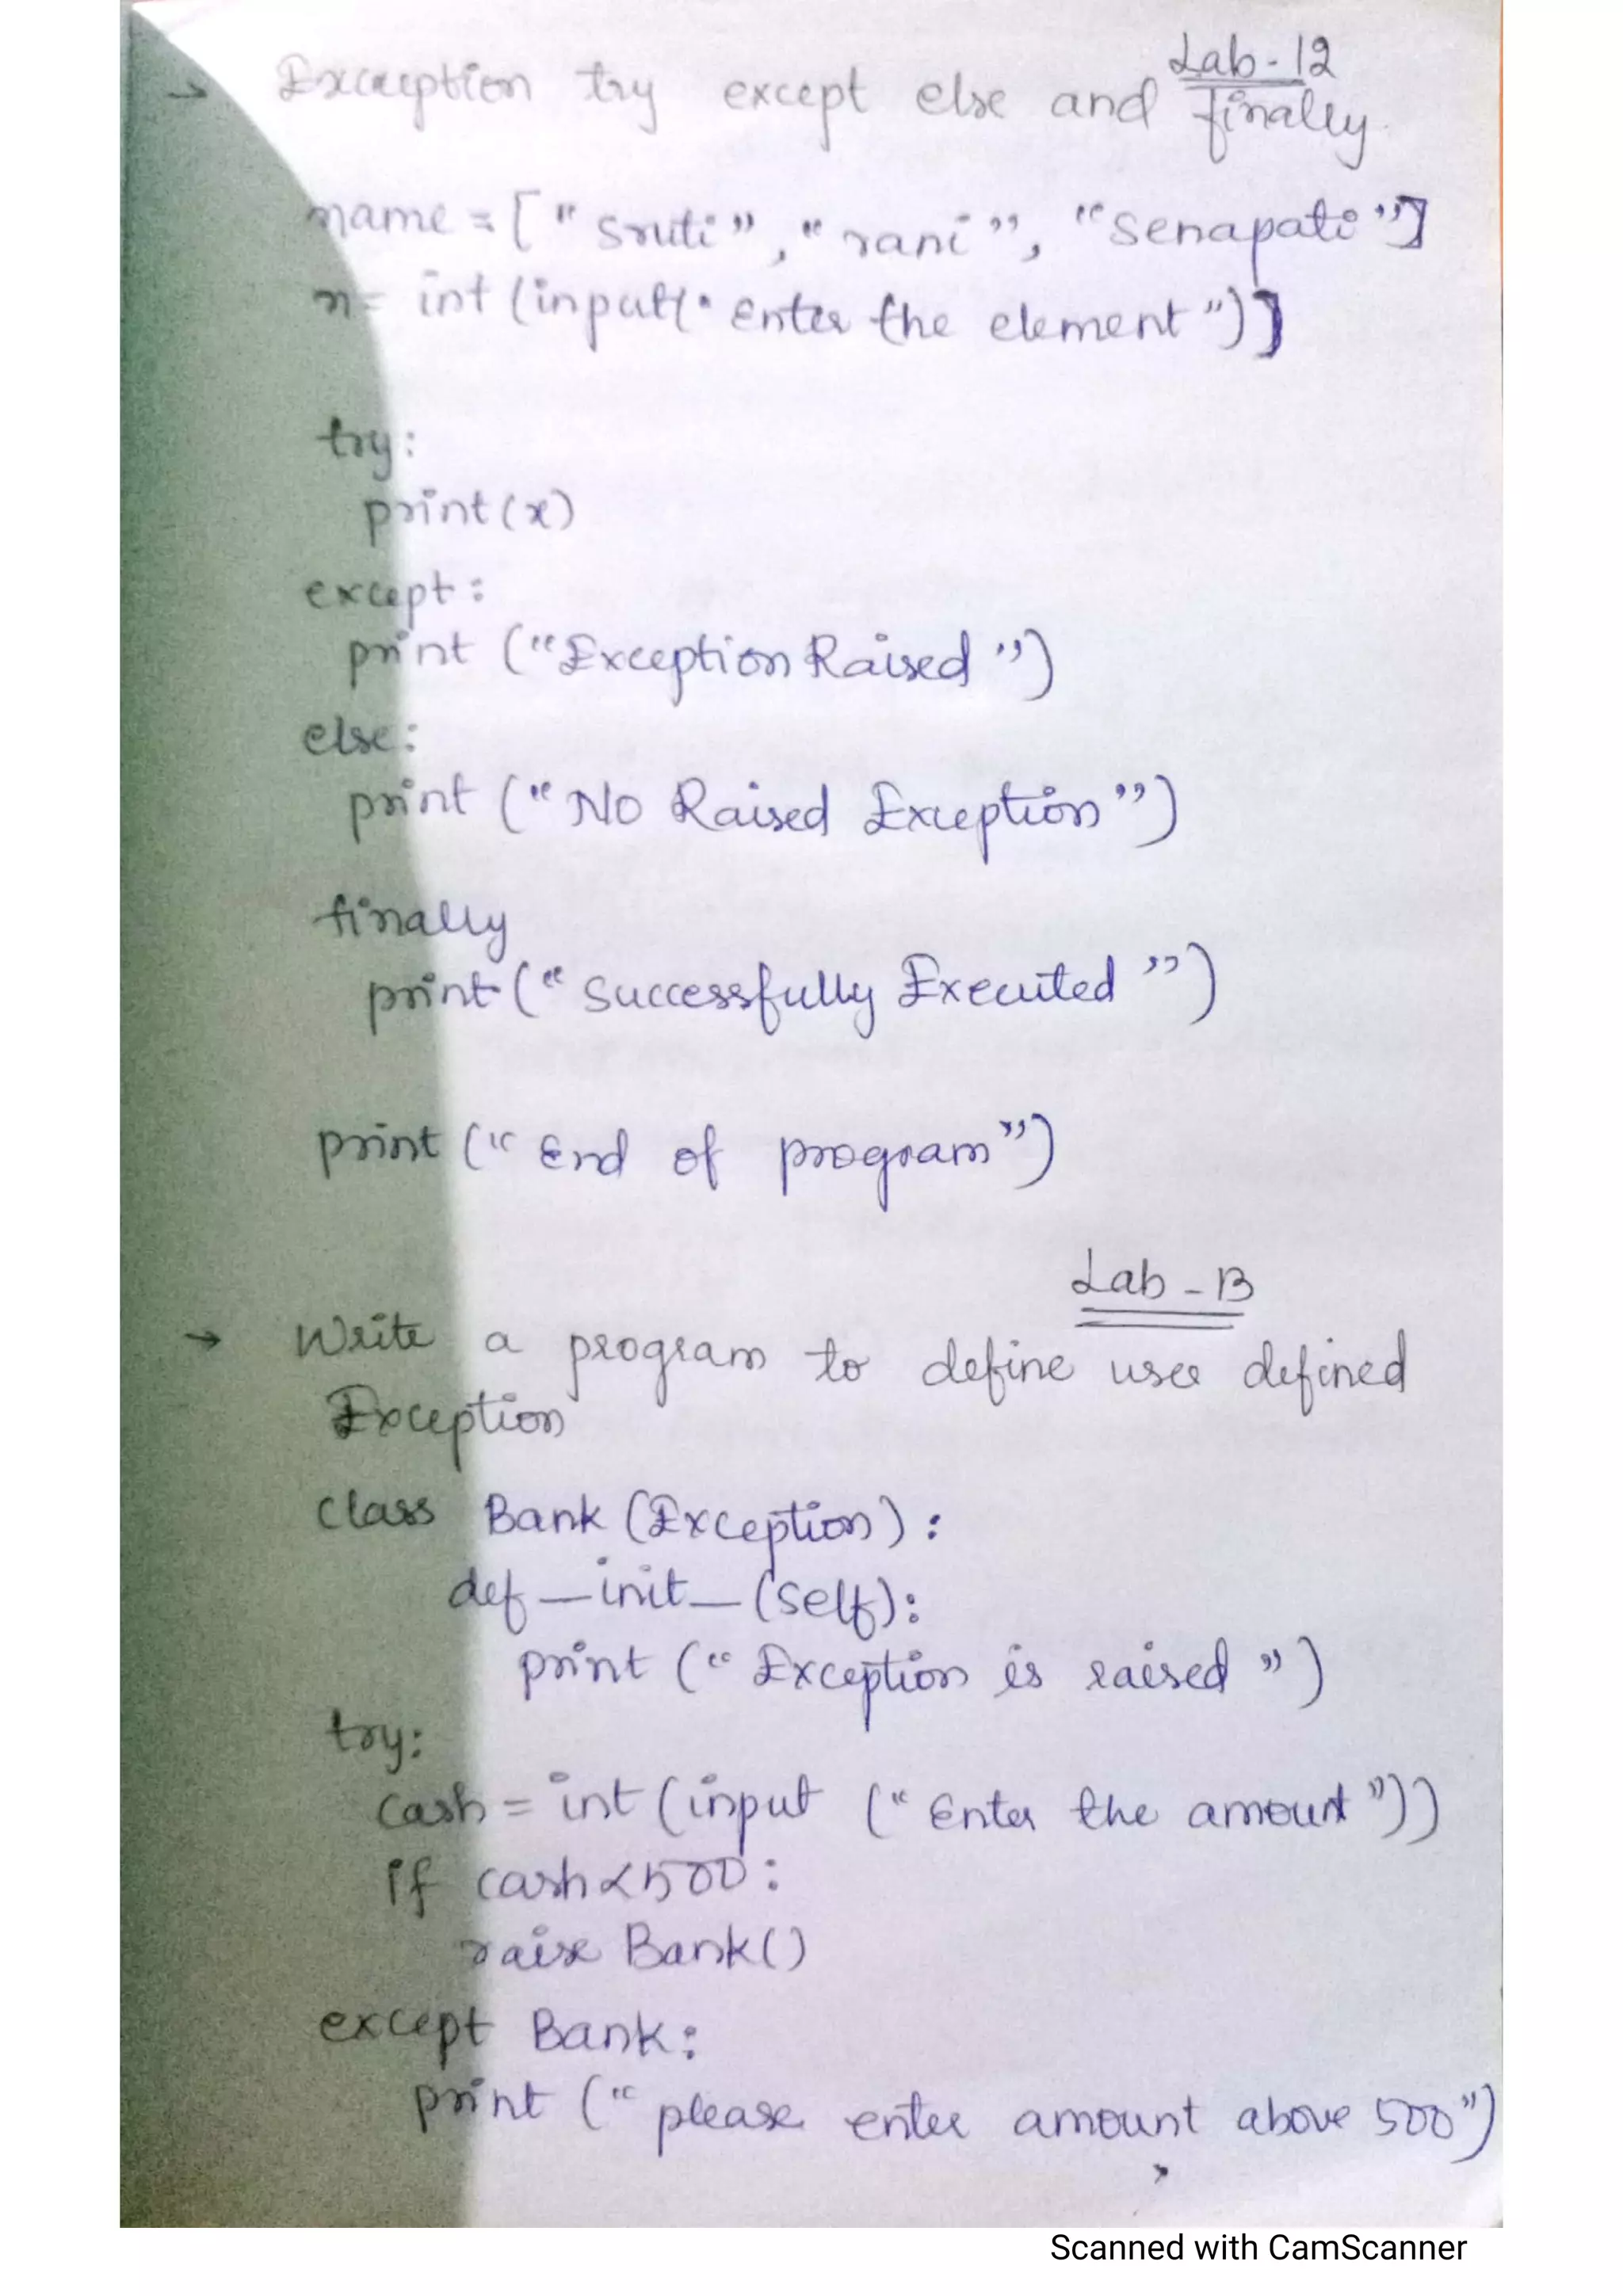 Lab-12
→ Exception try except else and finally.
name = ["Sruti", "rani", "Senapati"]
n = int (input(" Enter the element"))
try:
print(x)
except:
print ("Exception Raised")
else:
print ("No Raised Exception")
finally
print ("Successfully Executed")
print ("End of program")
Lab - 13
→ Write a program to define user defined
Exception
class Bank (Exception):
def _init_ (self):
print ("Exception is raised")
try:
cash = int (input ("Enter the amount"))
if cash<500:
raise Bank()
except Bank:
print ("please enter amount above 500")
Scanned with CamScanner